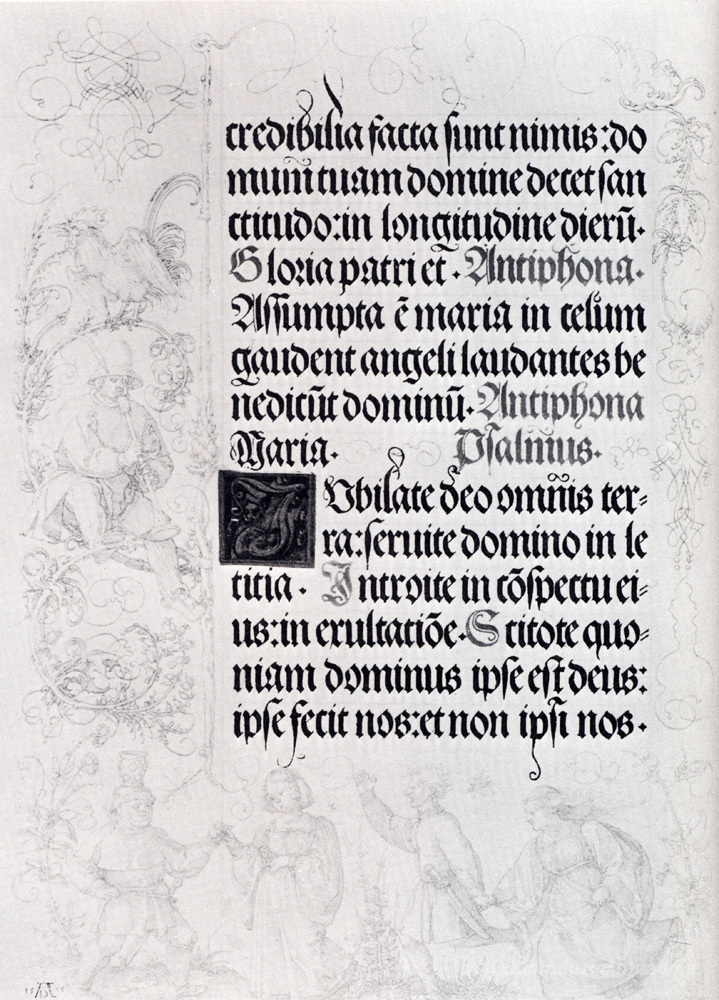 credibilia facta sunt nimis: do
mum̄ tuam domine decet san
ctitudo: in longitudine dierū.
Gloria patri et. Antiphona.
Assumpta ē maria in celum
gaudent angeli laudantes be
nedicūt dominū. Antiphona
Maria. Psalmus.
IVbilate deo omnis ter⸗
ra: seruite domino in le
titia. Introite in cōspectu ei⸗
us: in exultatiōe. Scitote quo⸗
niam dominus ipse est deus:
ipse fecit nos: et non ipsi nos.